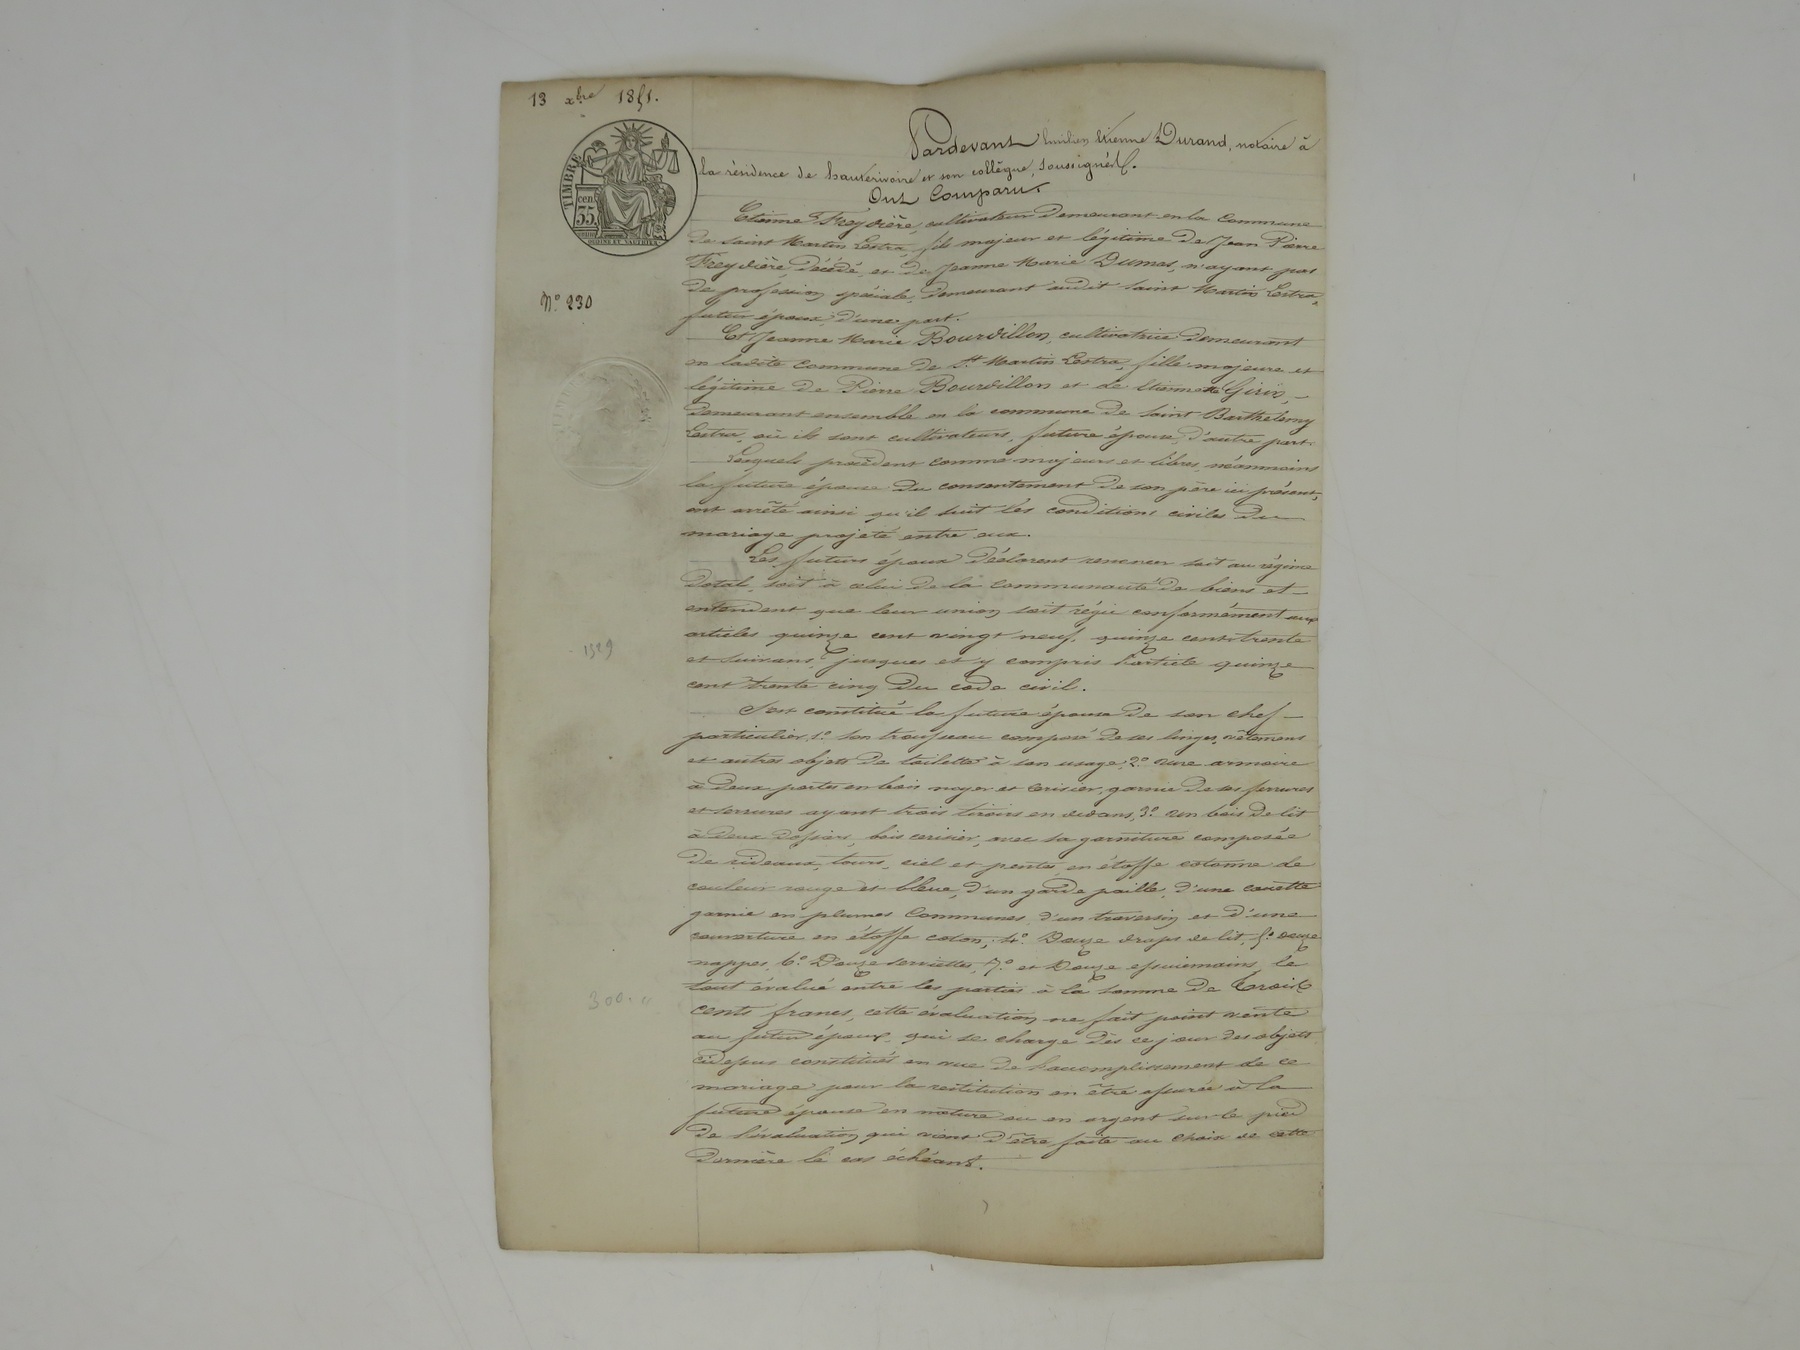 13 xbre 1851.
TIMBRE
cen
35
ORDINE ET
Pardevant Emilien Etienne Durand, notaire à
la résidence de hauterivoire et son collègue, soussignés.
Ont Comparu
Etienne Freydière, cultivateur demeurant en la Commune
de saint Martin Lestra, fils majeur et légitime de Jean Pierre
Freydière, décédé, et de Jeanne Marie Dumas, n'ayant pas
de profession spéciale, demeurant audit saint Martin Lestra,
futur époux, d'une part.
N° 230
Et Jeanne Marie Bourdillon, cultivatrice demeurant
en ladite Commune de St Martin Lestra, fille majeure et
légitime de Pierre Bourdillon et de Etiennette Girin,
demeurant ensemble en la commune de saint Barthélemy
Lestra, où ils sont cultivateurs, future épouse, d'autre part.
Lesquels procèdent comme majeurs et libres, néanmoins
la future épouse du consentement de son père ici présent,
ont arrêté ainsi qu'il suit les conditions civiles du
mariage projeté entre eux.
Les futurs époux déclarent renoncer soit au régime
dotal, soit à celui de la communauté de biens et
entendent que leur union soit régie conformément aux
articles quinze cent vingt neuf, quinze cent trente
1529
et suivans, jusques et y compris l'article quinze
cent trente cinq du code civil.
S'est constitué la future épouse de son chef
particulier, 1° son trousseau composé de ses linges, vêtemens
et autres objets de toilette à son usage; 2° une armoire
à deux portes en bois noyer et cerisier, garnie de ses ferrures
et serrures ayant trois tiroirs en dedans, 3° un bois de lit
à deux dossiers, bois cerisier, avec sa garniture composée
de rideaux, tours, ciel et pentes en étoffe cotonne de
couleur rouge et bleue, d'un garde paille, d'une couette
garnie en plumes Communes, d'un traversin et d'une
couverture en étoffe coton; 4° Douze draps de lit, 5° douze
nappes, 6° Douze serviettes, 7° et Douze essuiemains, le
tout évalué entre les parties à la somme de Trois
300. "
cents francs, cette évaluation ne fait point vente
au futur époux qui se charge dès ce jour des objets
cidessus constitués en vue de l'accomplissement de ce
mariage pour la restitution en être assurée à la
future épouse en nature ou en argent sur le pied
de l'évaluation qui vient d'être faite au choix de cette
dernière le cas échéant.